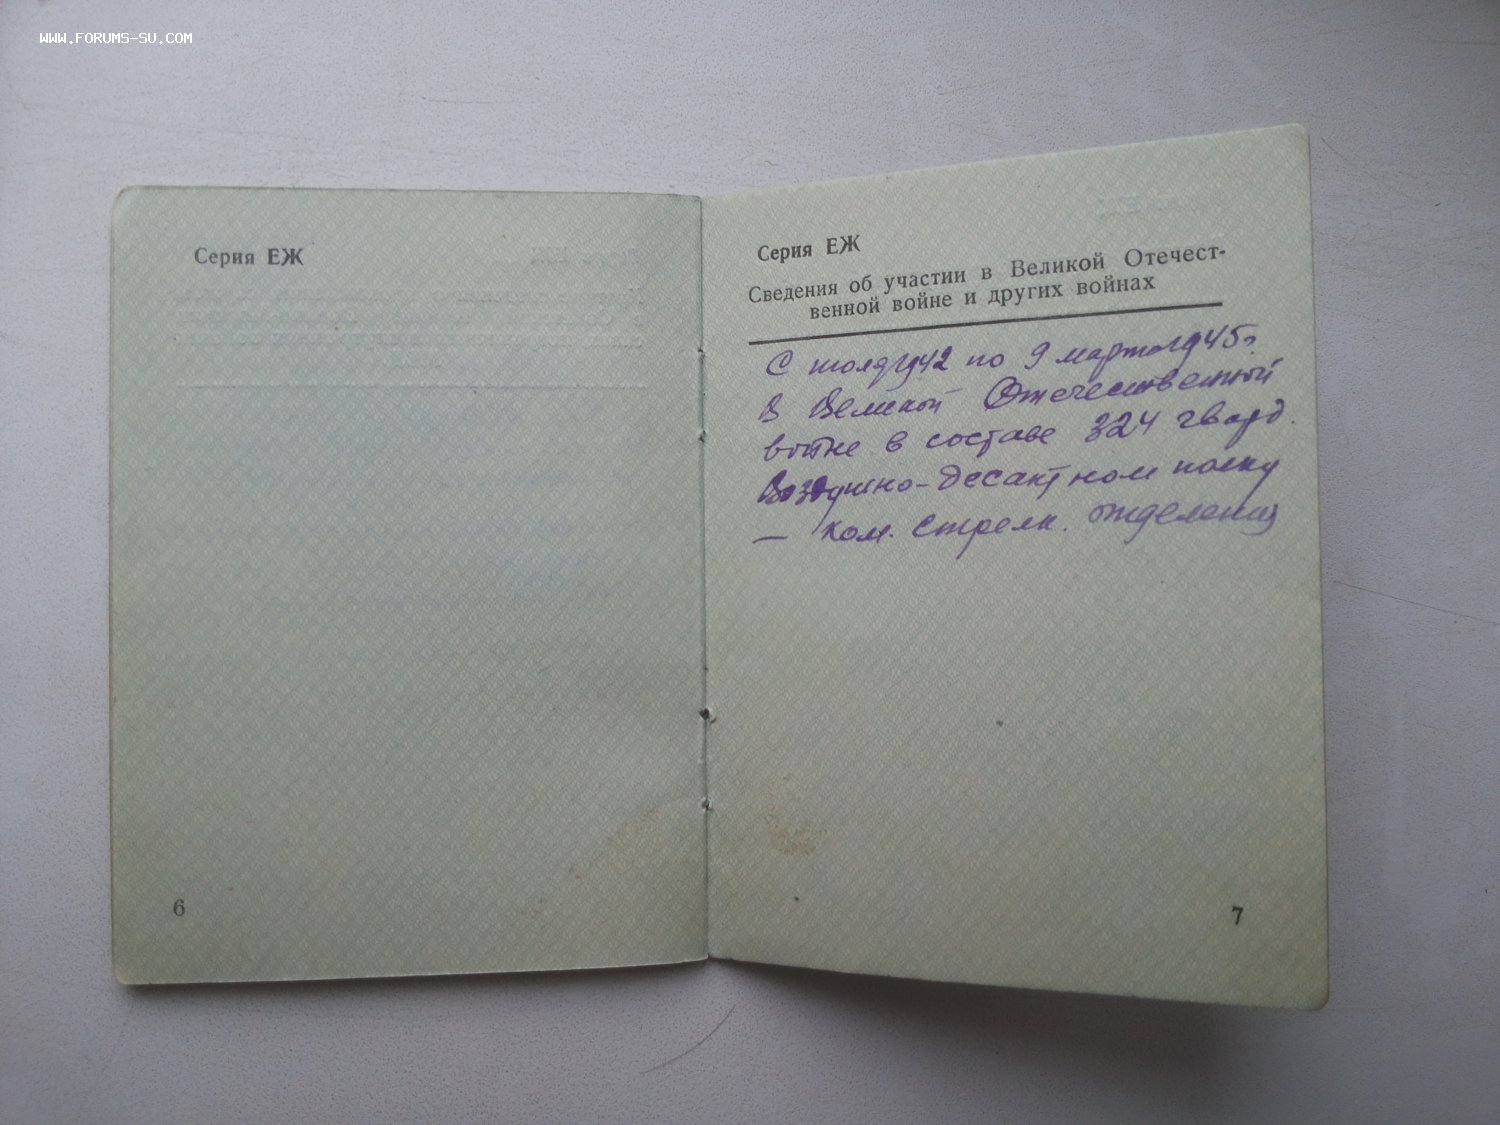 WWW.FORUMS-SU.COM
Серия ЕЖ
6
Серия ЕЖ
Сведения об участии в Великой Отечест-
венной войне и других войнах
С июля 1942 по 9 марта 1945г.
В Великой Отечественной
войне в составе 324 гвард.
Воздушно-десантном полку
— ком. стрелк. отделения
7